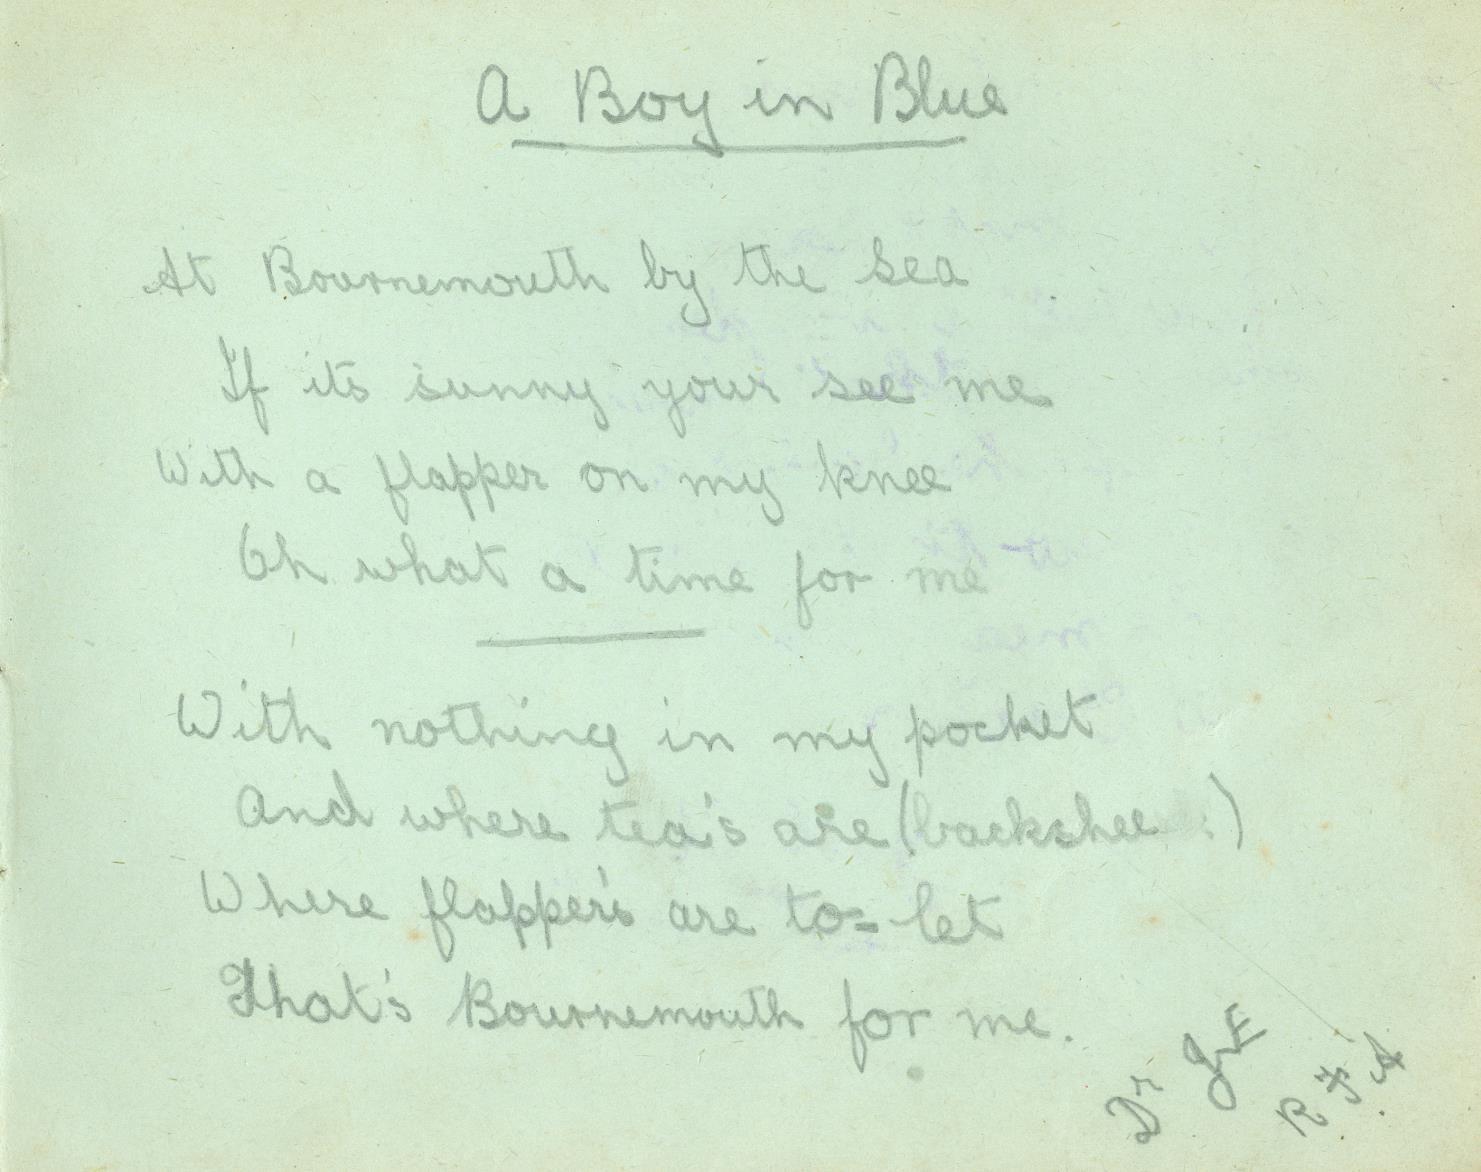 A Boy in Blue
At Bournemouth by the Sea
If its sunny your see me
With a flapper on my knee
Oh what a time for me
With nothing in my pocket
And where tea's are (backshee .)
Where flapper's are to= let
That's Bournemouth for me.
Dr J E
R F A